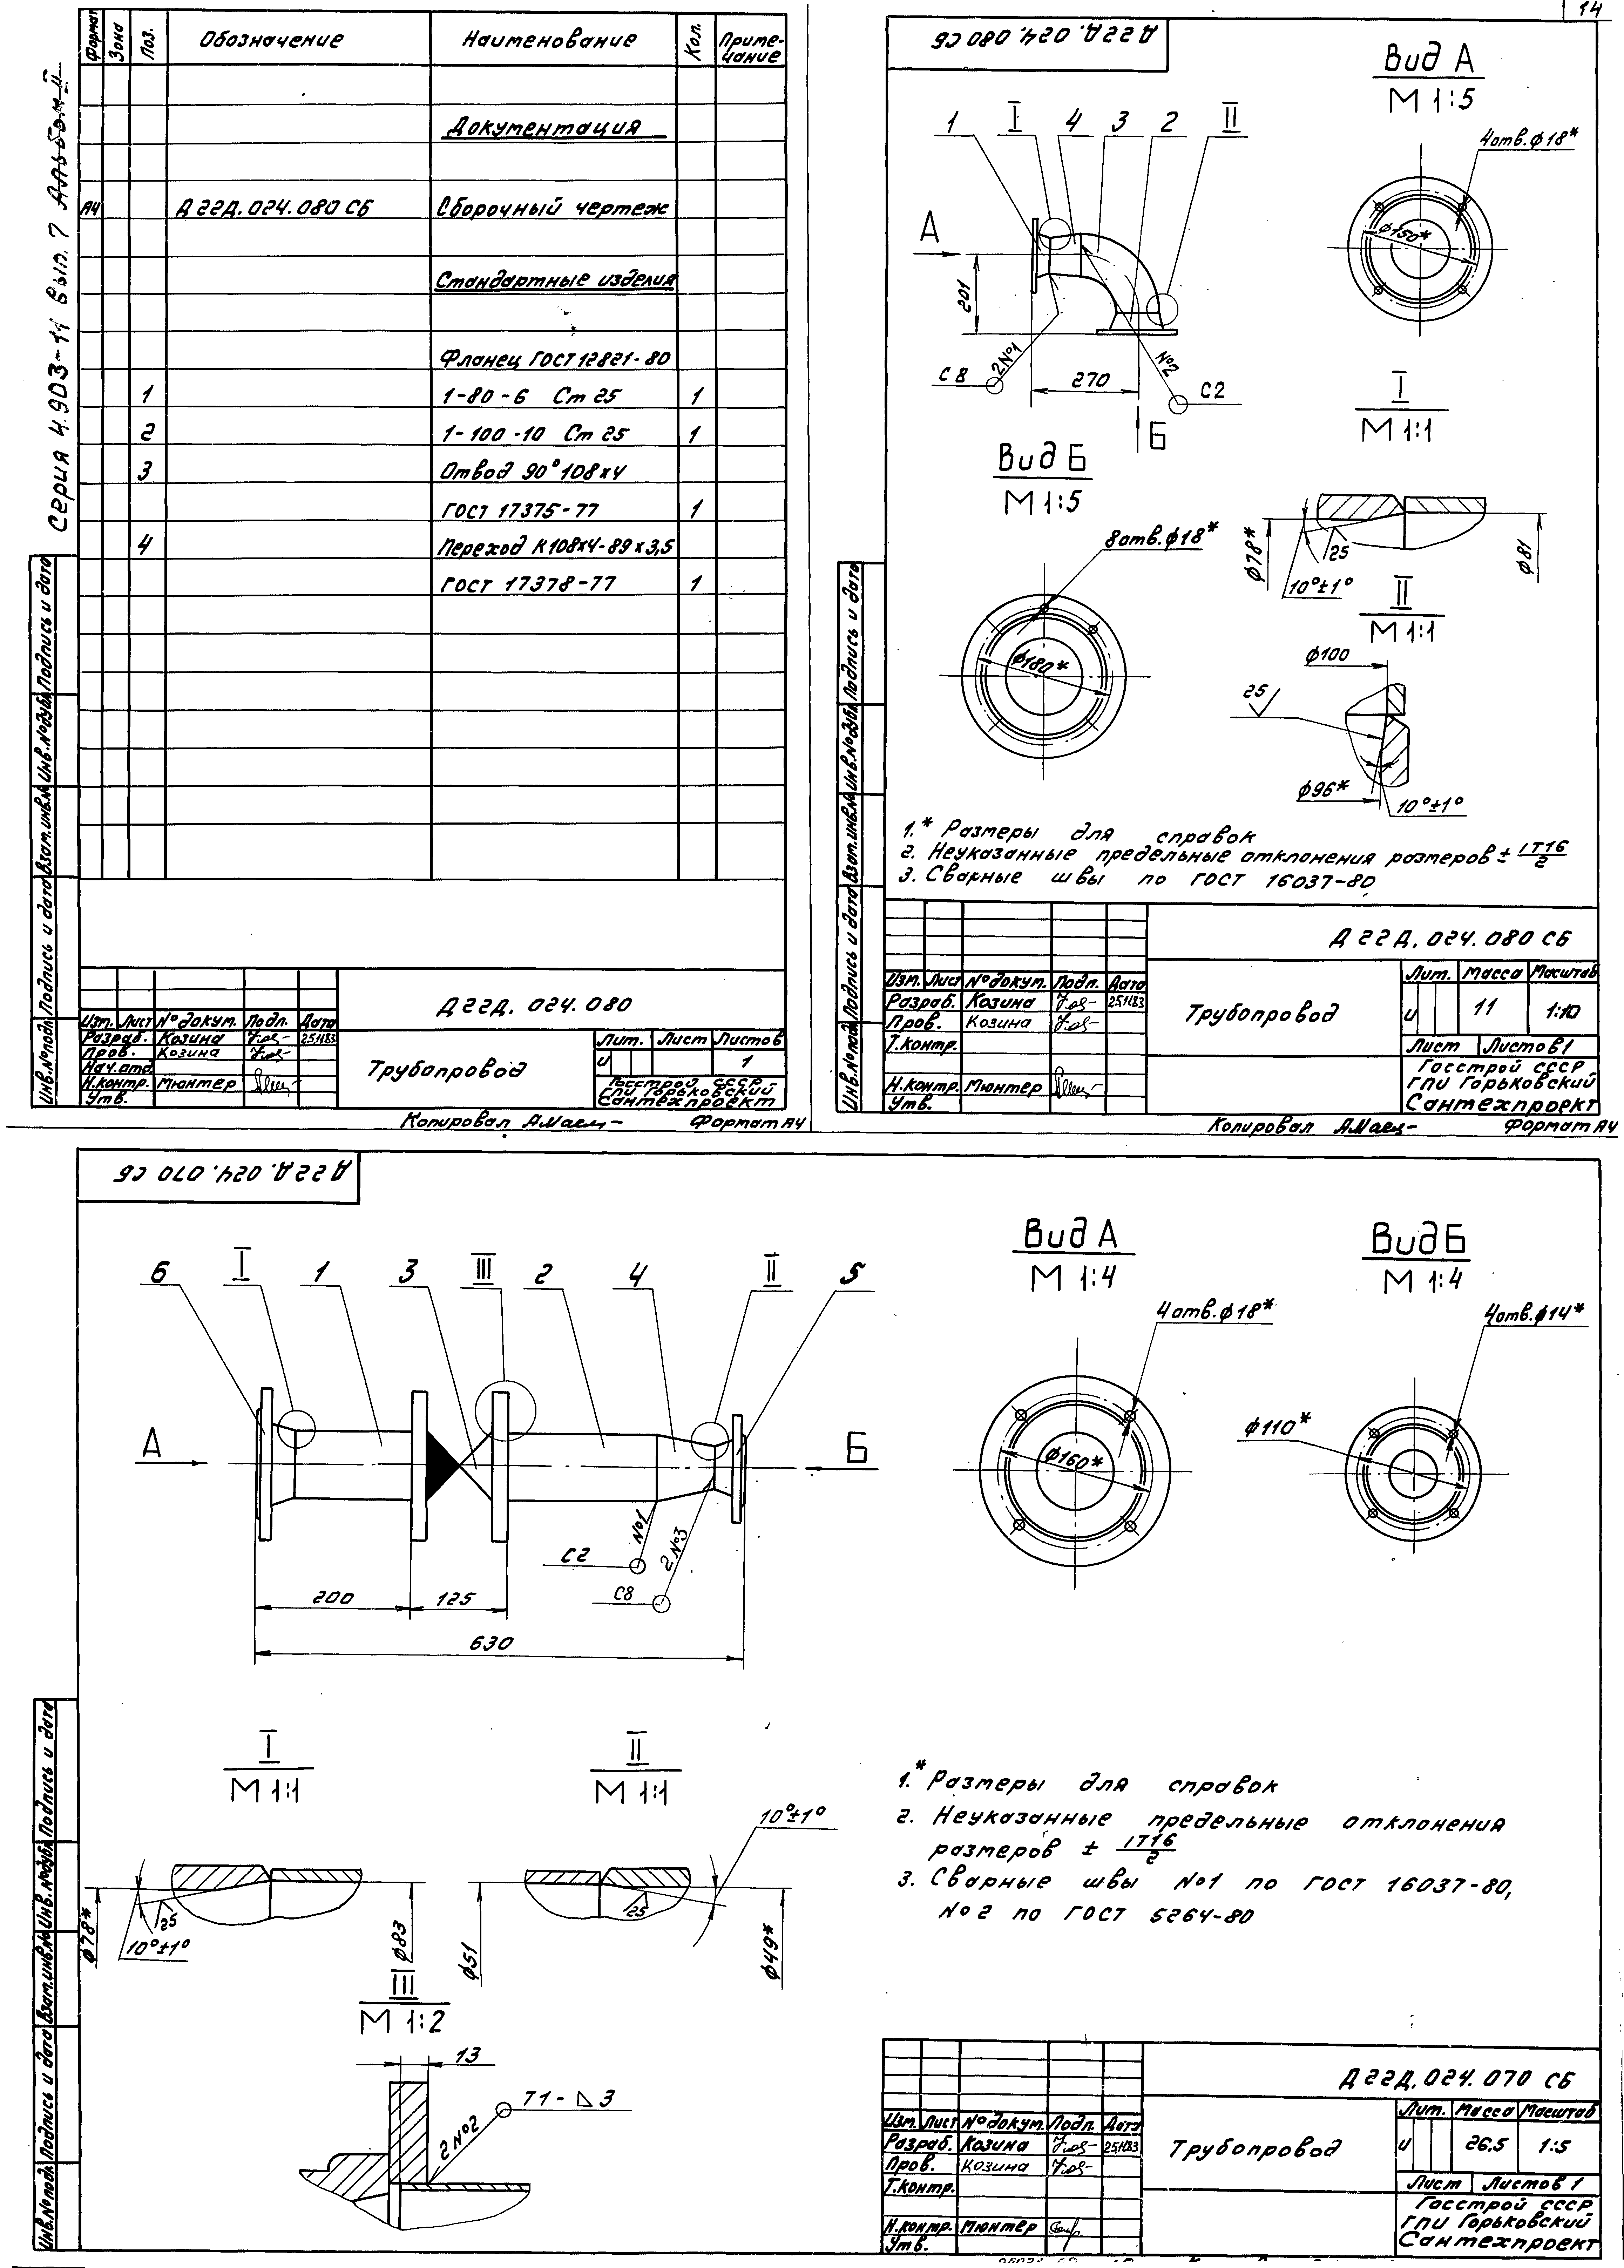 14
Серия 4.903-11 Вып. 7 Альбом II
Формат Зона Поз. Обозначение Наименование Кол. Примечание
Документация
А4 Д22Д.024.080 СБ Сборочный чертеж
Стандартные изделия
Фланец ГОСТ 12821-80
1 1-80-6 Ст 25 1
2 1-100-10 Ст 25 1
3 Отвод 90° 108х4
ГОСТ 17375-77 1
4 Переход К108х4-89х3,5
ГОСТ 17378-77 1
Инв.№подл. Подпись и дата Взам.инв.№ Инв.№дубл. Подпись и дата
Д22Д.024.080
Изм. Лист №докум. Подп. Дата
Разраб. Козина 25.11.83
Пров. Козина
Нач.отд.
Н.контр. Мюнтер
Утв.
Трубопровод
Лит. Лист Листов
и 1
Госстрой СССР
ГПИ Горьковский
Сантехпроект
Копировал А.Маец- Формат А4
Д22Д.024.080 СБ
1 I 4 3 2 II
А
201
С8
2№1
270
№2
С2
Б
Вид А
М 1:5
4отв.ф18*
ф150*
Вид Б
М 1:5
8отв.ф18*
ф180*
I
М 1:1
ф78*
25
10°±1°
ф81
II
М 1:1
ф100
25
ф96*
10°±1°
1.* Размеры для справок
2. Неуказанные предельные отклонения размеров ± IT16/2
3. Сварные швы по ГОСТ 16037-80
Инв.№подл. Подпись и дата Взам.инв.№ Инв.№дубл. Подпись и дата
Д22Д.024.080 СБ
Изм. Лист №докум. Подп. Дата
Разраб. Козина 25.11.83
Пров. Козина
Т.контр.
Н.контр. Мюнтер
Утв.
Трубопровод
Лит. Масса Масштаб
и 11 1:10
Лист Листов 1
Госстрой СССР
ГПИ Горьковский
Сантехпроект
Копировал А.Маец- Формат А4
Д22Д.024.070 СБ
6 I 1 3 III 2 4 II 5
А
Б
С2
№1
С8
2№3
200
125
630
Вид А
М 1:4
4отв.ф18*
ф160*
Вид Б
М 1:4
4отв.ф14*
ф110*
I
М 1:1
ф78*
25
10°±1°
ф83
II
М 1:1
10°±1°
ф51
25
ф49*
III
М 1:2
13
2№2
Т1-⊿3
1.* Размеры для справок
2. Неуказанные предельные отклонения
размеров ± IT16/2
3. Сварные швы №1 по ГОСТ 16037-80,
№2 по ГОСТ 5264-80
Инв.№подл. Подпись и дата Взам.инв.№ Инв.№дубл. Подпись и дата
Д22Д.024.070 СБ
Изм. Лист №докум. Подп. Дата
Разраб. Козина 25.11.83
Пров. Козина
Т.контр.
Н.контр. Мюнтер
Утв.
Трубопровод
Лит. Масса Масштаб
и 26.5 1:5
Лист Листов 1
Госстрой СССР
ГПИ Горьковский
Сантехпроект